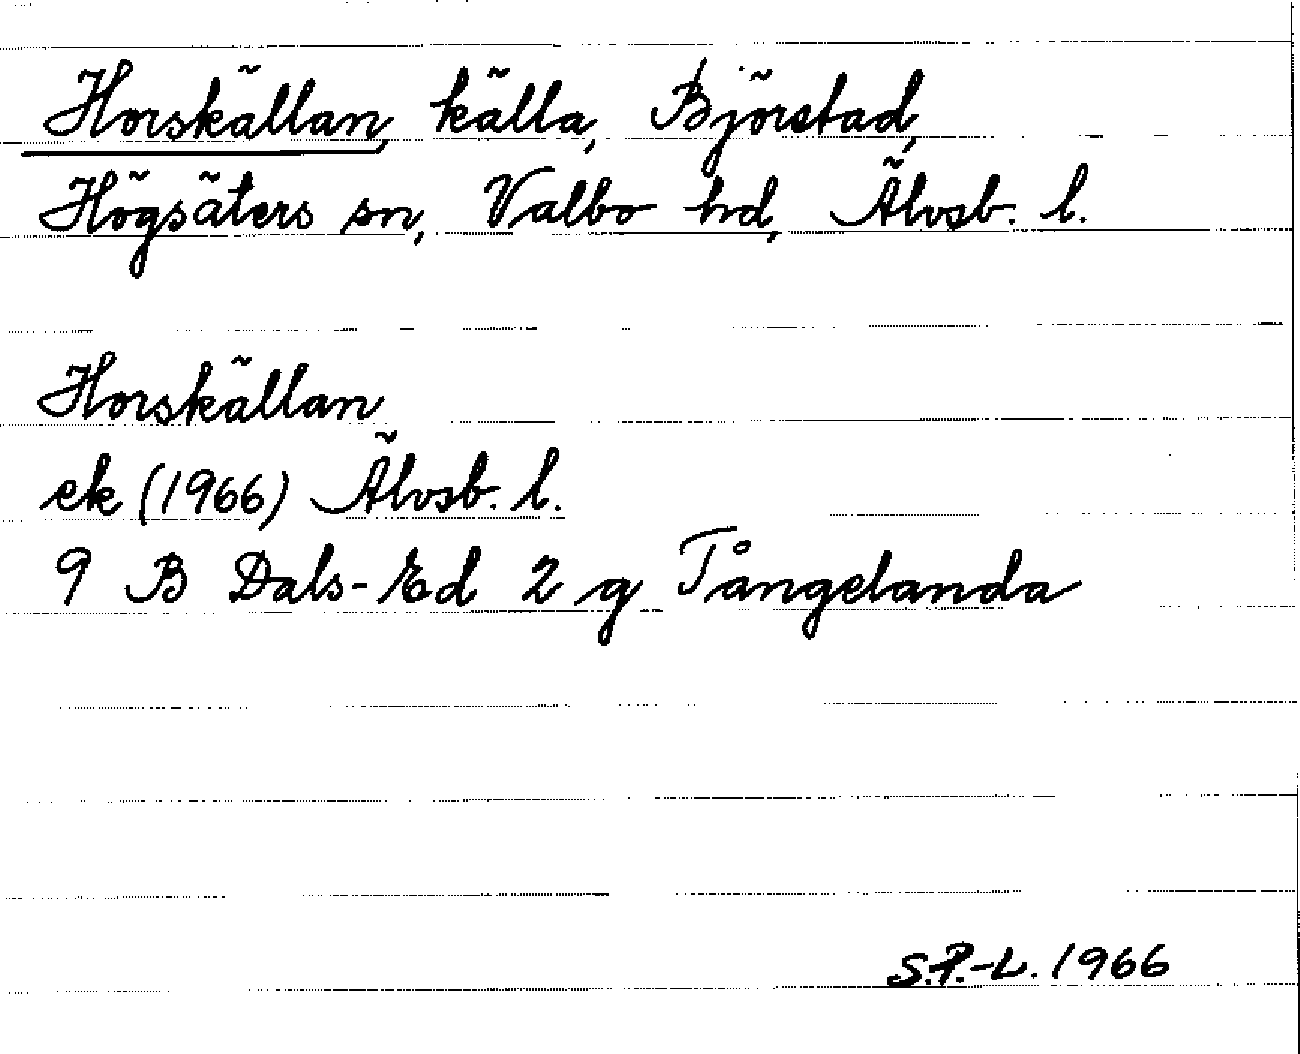 Horskällan, källa, Björstad,
Högsäters sn, Valbo hd, Älvsb. l.
Horskällan
ek (1966) Älvsb. l.
9 B Dals-Ed 2 g Tångelanda
S.P.-L. 1966